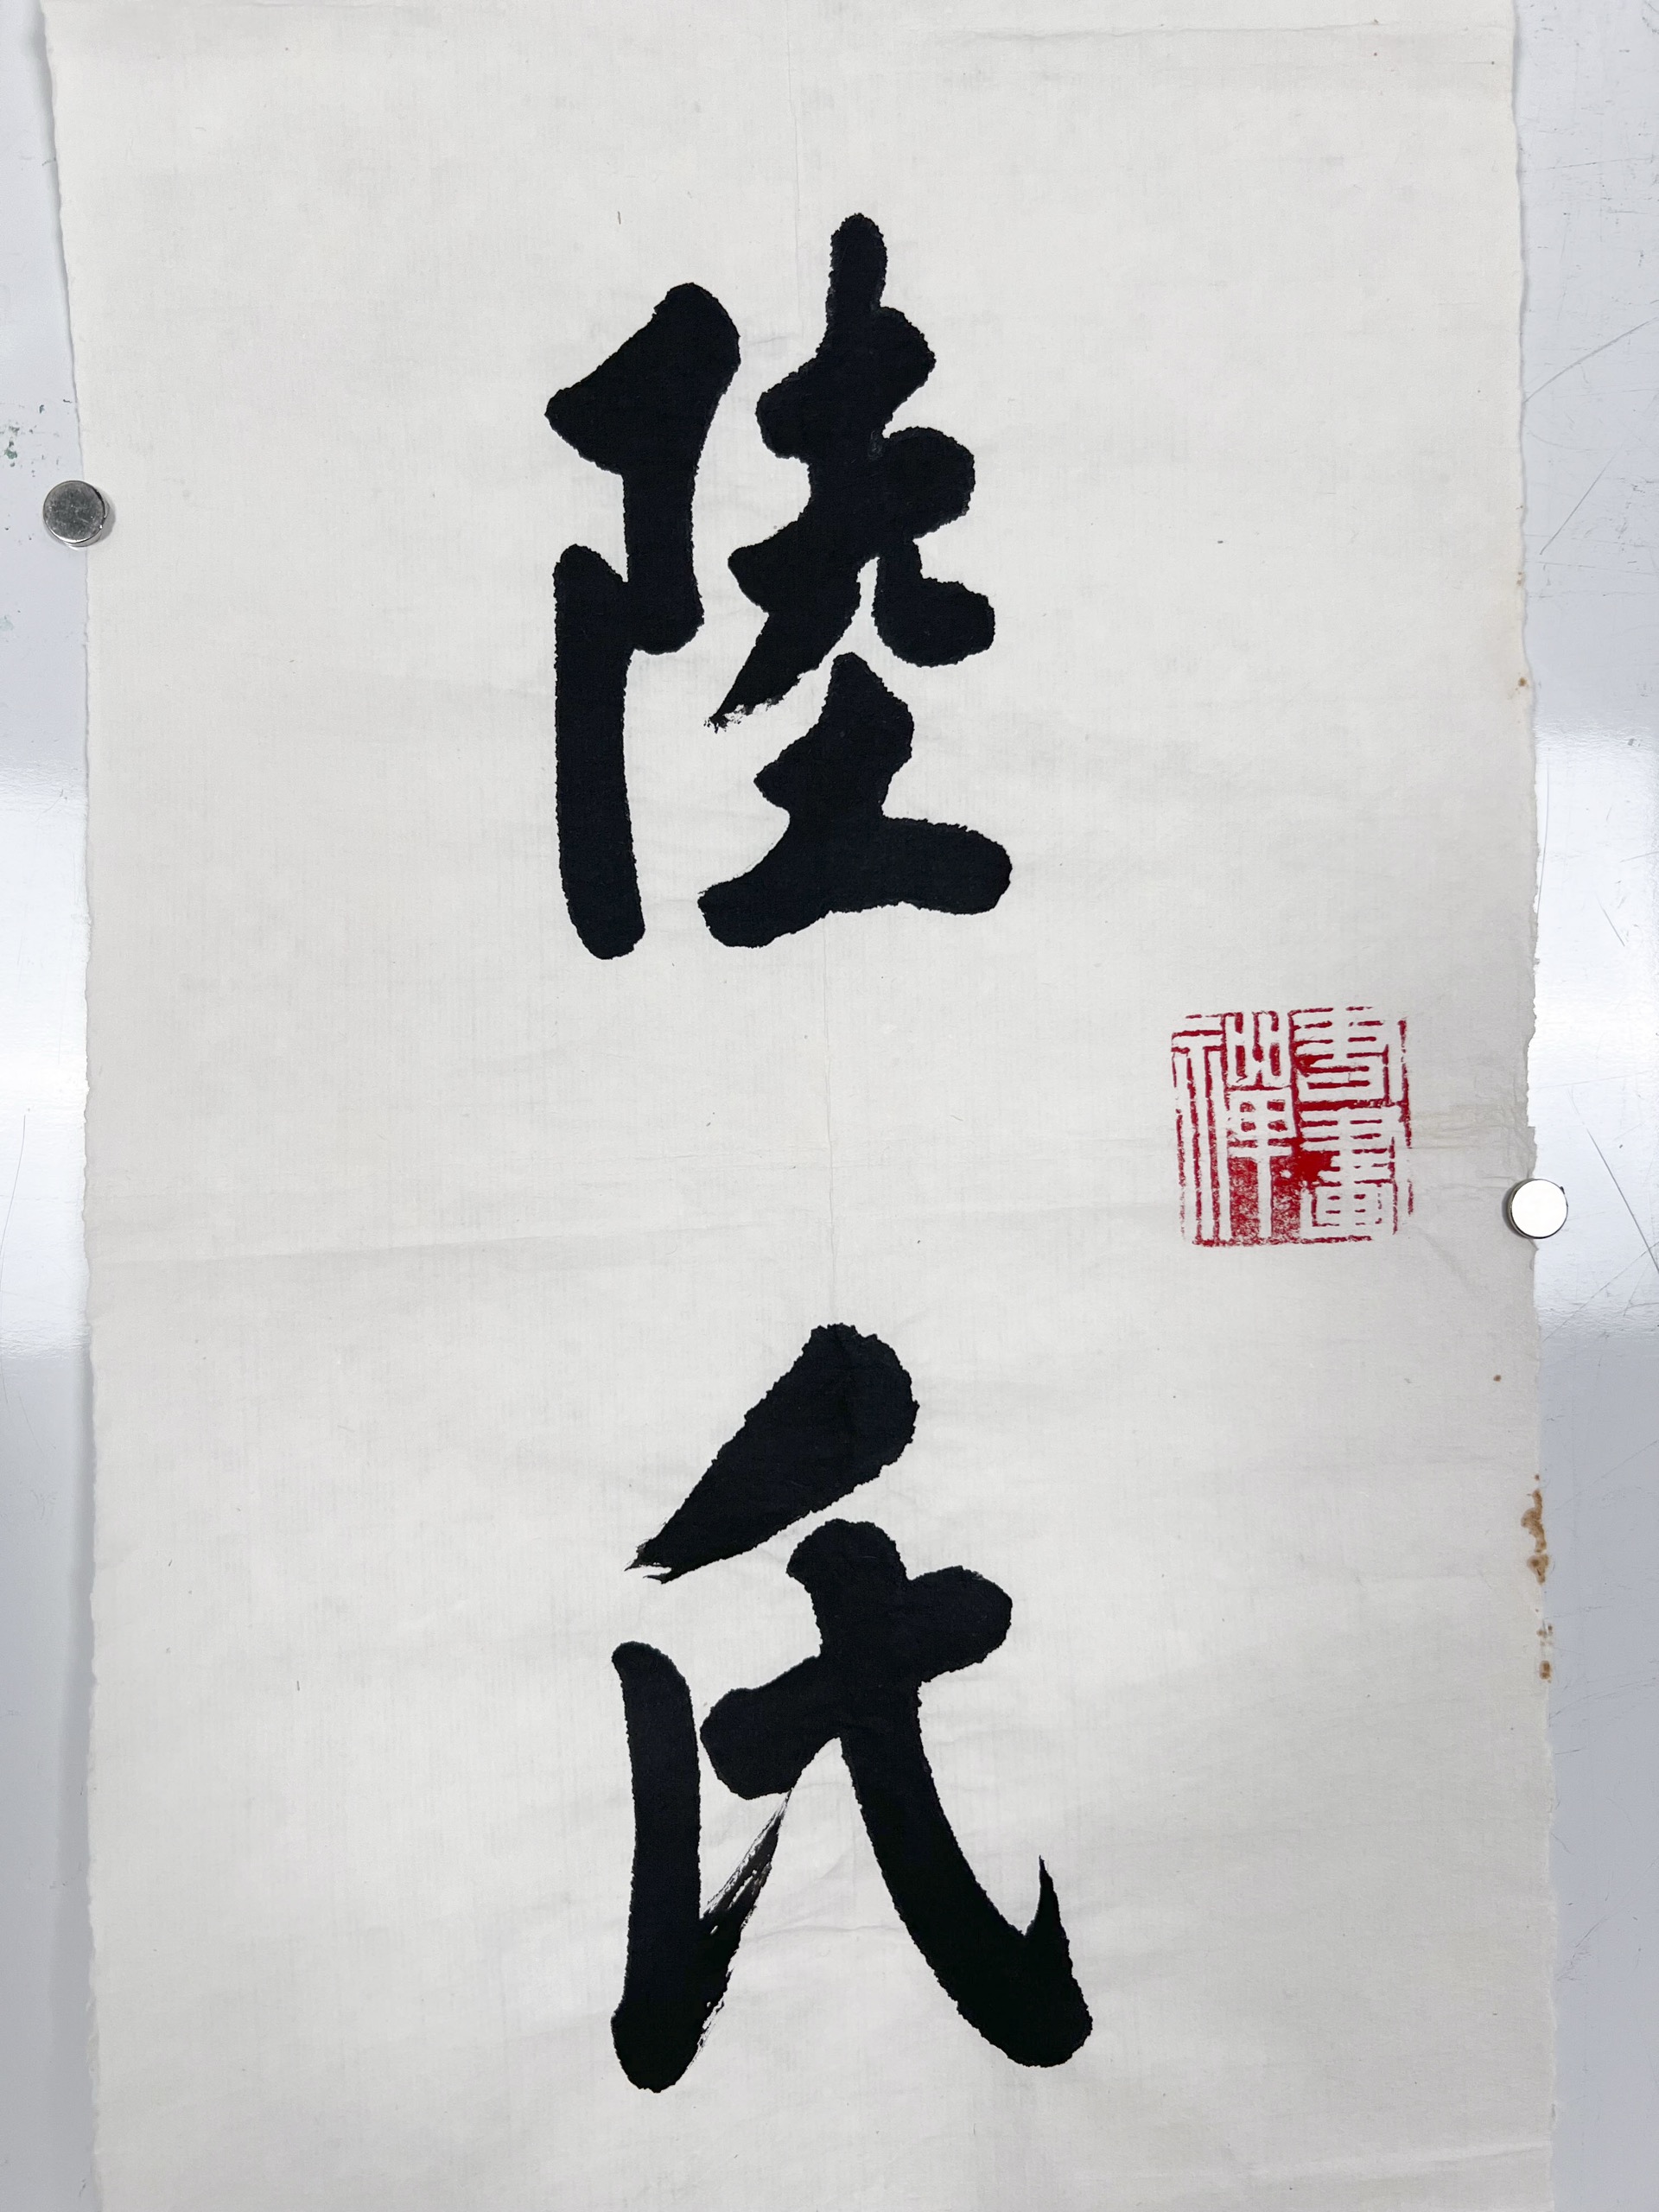 陸氏
書畫禪